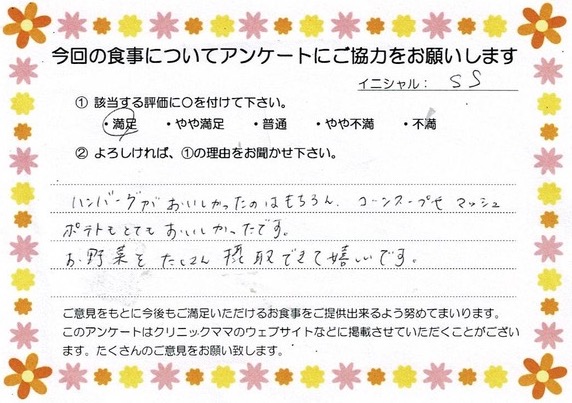 今回の食事についてアンケートにご協力をお願いします
イニシャル： SS
① 該当する評価に○を付けて下さい。
・満足 ・やや満足 ・普通 ・やや不満 ・不満
② よろしければ、①の理由をお聞かせ下さい。
ハンバーグがおいしかったのはもちろん、コーンスープやマッシュ
ポテトもとてもおいしかったです。
お野菜をたくさん摂取できて嬉しいです。
ご意見をもとに今後もご満足いただけるお食事をご提供出来るよう努めてまいります。
このアンケートはクリニックママのウェブサイトなどに掲載させていただくことがござい
ます。たくさんのご意見をお願い致します。